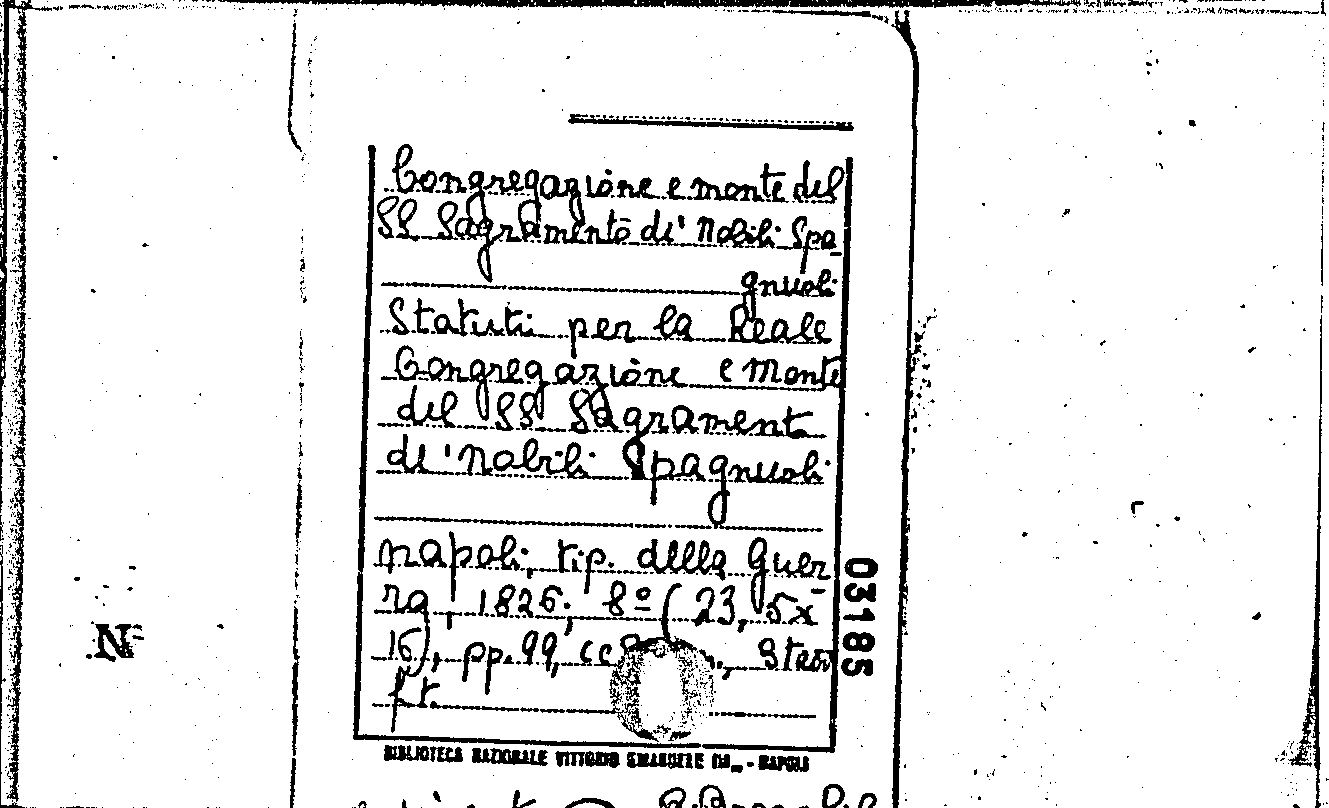 Congregazione e monte del
SS Sagramento di' Nobili Spa-
gnuoli
Statuti per la Reale
Congregazione e Monte
del SS Sagrament
di' Nobili Spagnuoli
Napoli, tip. della Guer-
ra, 1826; 8º (23,5x
16), pp. 99,
ft.
03185
BIBLIOTECA NAZIONALE VITTORIO EMANUELE III - NAPOLI
N